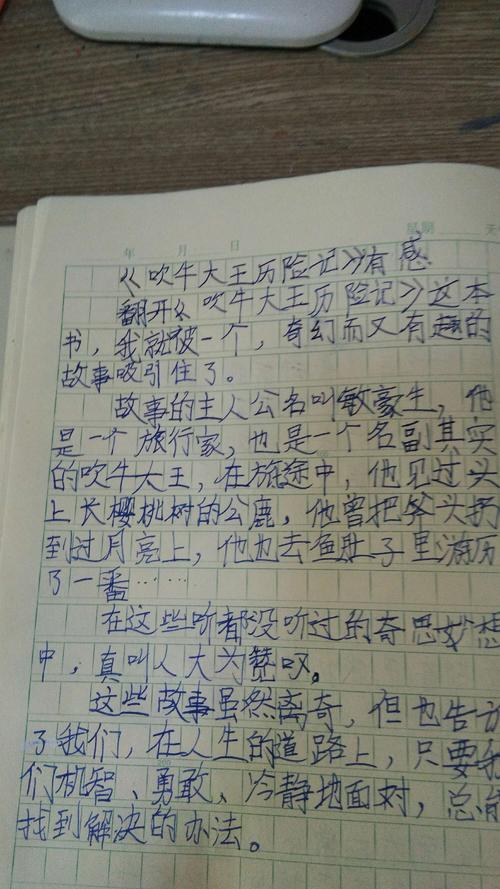 年 月 日 星期
《吹牛大王历险记》有感
翻开《吹牛大王历险记》这本
书，我就被一个，奇幻而又有趣的
故事吸引住了。
故事的主人公名叫敏豪生，他
是一个旅行家，也是一个名副其实
的吹牛大王，在旅途中，他见过头
上长樱桃树的公鹿，他曾把斧头扔
到过月亮上，他也去鱼肚子里游历
了一番……
在这些听都没听过的奇思妙想
中，真叫人大为赞叹。
这些故事虽然离奇，但也告诉
了我们，在人生的道路上，只要我
们机智、勇敢、冷静地面对，总能
找到解决的办法。